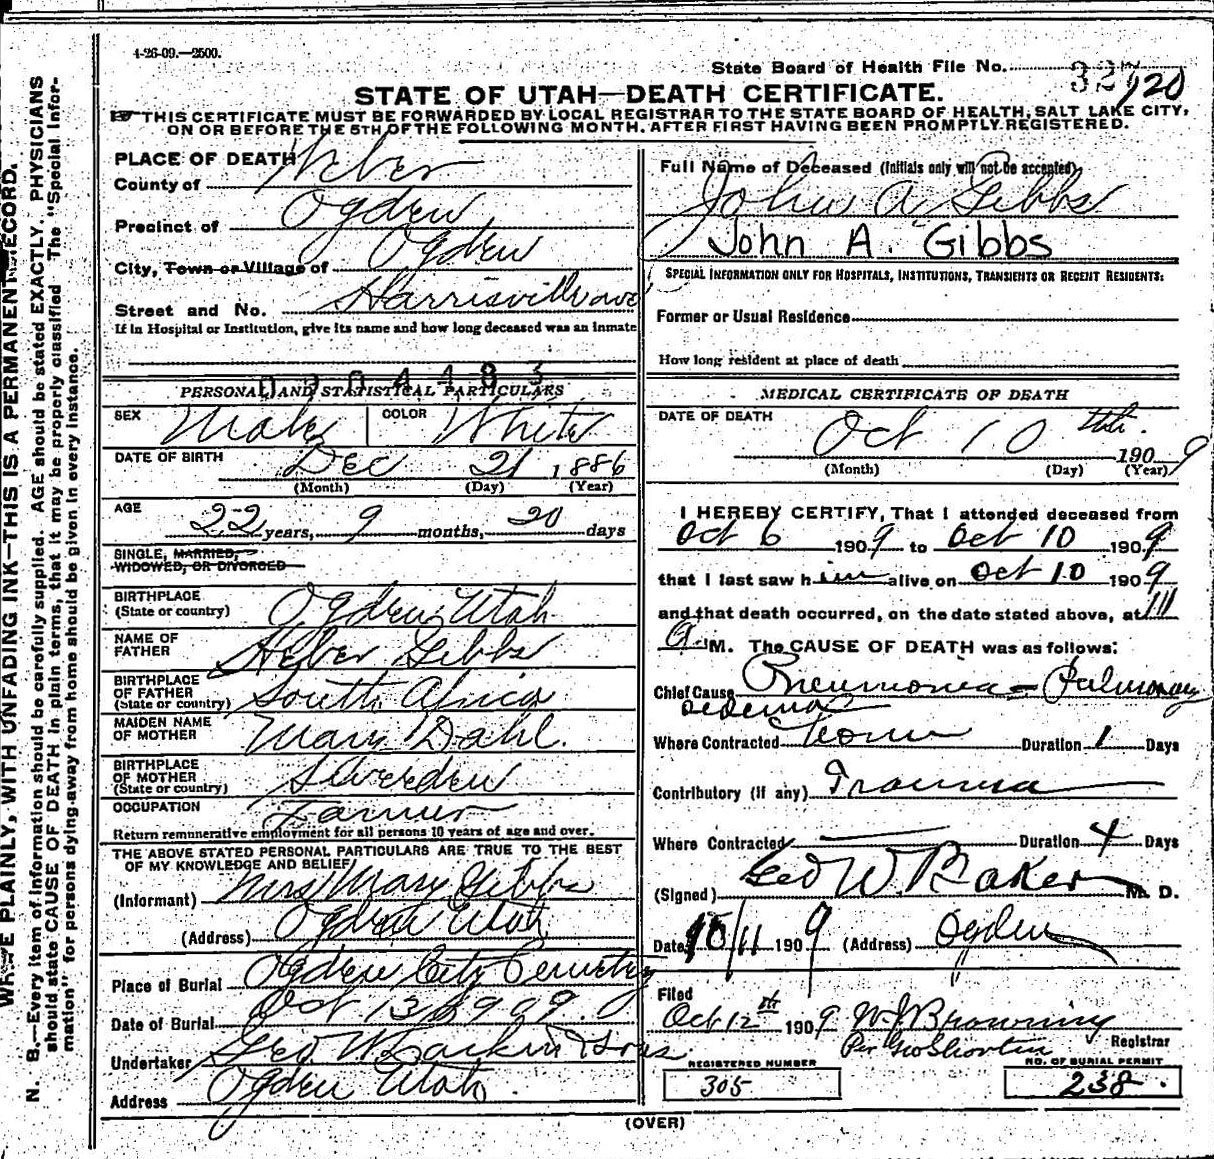 4-26-09.—2500.
State Board of Health File No. 327 120
STATE OF UTAH—DEATH CERTIFICATE.
THIS CERTIFICATE MUST BE FORWARDED BY LOCAL REGISTRAR TO THE STATE BOARD OF HEALTH, SALT LAKE CITY,
ON OR BEFORE THE 5TH OF THE FOLLOWING MONTH, AFTER FIRST HAVING BEEN PROMPTLY REGISTERED.
PLACE OF DEATH
County of Weber
Precinct of Ogden
City, Town or Village of Ogden
Street and No. Harrisville ave
If in Hospital or Institution, give its name and how long deceased was an inmate
PERSONAL AND STATISTICAL PARTICULARS
SEX Male COLOR White
DATE OF BIRTH Dec 21 1886
(Month) (Day) (Year)
AGE 22 years, 9 months, 20 days
SINGLE, MARRIED,
WIDOWED, OR DIVORCED
BIRTHPLACE
(State or country) Ogden Utah
NAME OF
FATHER Heber Gibbs
BIRTHPLACE
OF FATHER
(State or country) South Africa
MAIDEN NAME
OF MOTHER Mary Dahl.
BIRTHPLACE
OF MOTHER
(State or country) Sweeden
OCCUPATION Farmer
Return remunerative employment for all persons 10 years of age and over.
THE ABOVE STATED PERSONAL PARTICULARS ARE TRUE TO THE BEST
OF MY KNOWLEDGE AND BELIEF
(Informant) Mrs Mary Gibbs
(Address) Ogden Utah
Place of Burial Ogden City Cemetery
Date of Burial Oct 13 1909.
Undertaker Geo W Larkin & Sons
Address Ogden Utah.
Full Name of Deceased (Initials only will not be accepted)
John A Gibbs
John A. Gibbs
SPECIAL INFORMATION ONLY FOR HOSPITALS, INSTITUTIONS, TRANSIENTS OR RECENT RESIDENTS:
Former or Usual Residence
How long resident at place of death
MEDICAL CERTIFICATE OF DEATH
DATE OF DEATH Oct 10 th. 1909
(Month) (Day) (Year)
I HEREBY CERTIFY, That I attended deceased from
Oct 6 1909 to Oct 10 1909
that I last saw him alive on Oct 10 1909
and that death occurred, on the date stated above, at
A M. The CAUSE OF DEATH was as follows:
Chief Cause Pneumonia - Pulmonary
oedema
Where Contracted Duration 1 Days
Contributory (if any) Trauma
Where Contracted Duration 4 Days
(Signed) Geo W Baker M. D.
Date 10/11 1909 (Address) Ogden
Filed
Oct 12th 1909 W J Browning
Per Geo Shorten Registrar
REGISTERED NUMBER NO. OF BURIAL PERMIT
305 238.
(OVER)
WRITE PLAINLY, WITH UNFADING INK—THIS IS A PERMANENT RECORD.
N. B.—Every item of information should be carefully supplied. AGE should be stated EXACTLY. PHYSICIANS
should state CAUSE OF DEATH in plain terms, that it may be properly classified. The "Special Infor-
mation" for persons dying away from home should be given in every instance.